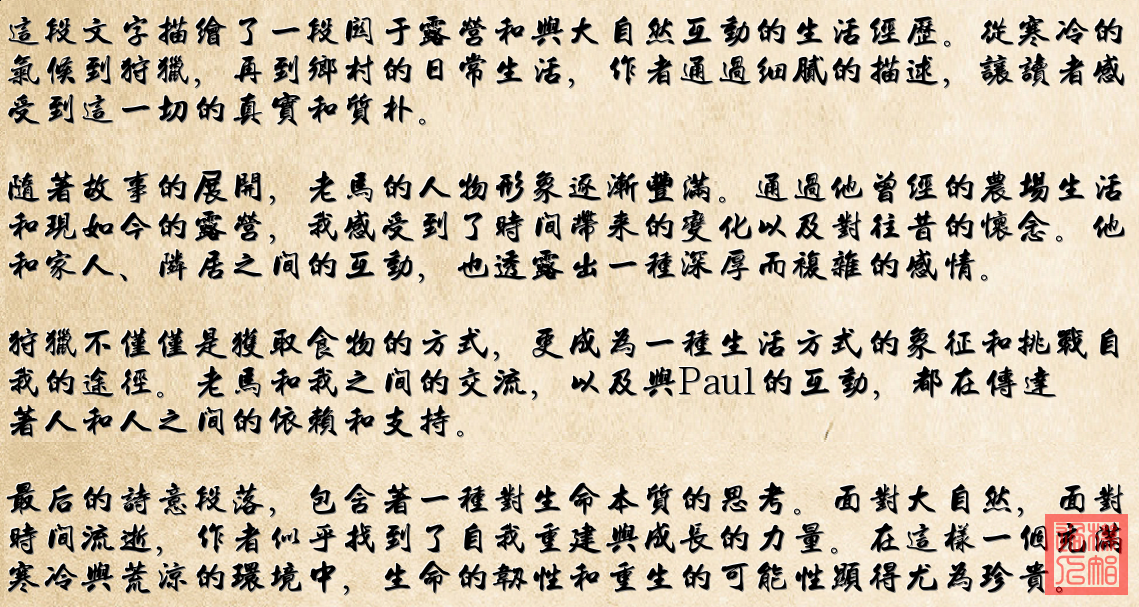 這段文字描繪了一段関于露營和與大自然互動的生活經歷。從寒冷的
氣候到狩獵，再到鄉村的日常生活，作者通過細膩的描述，讓讀者感
受到這一切的真實和質朴。
隨著故事的展開，老馬的人物形象逐漸豐滿。通過他曾經的農場生活
和現如今的露營，我感受到了時间帶来的變化以及對往昔的懷念。他
和家人、隣居之间的互動，也透露出一種深厚而複雜的感情。
狩獵不僅僅是獲取食物的方式，更成為一種生活方式的象征和挑戰自
我的途徑。老馬和我之间的交流，以及與Paul的互動，都在傳達
著人和人之间的依賴和支持。
最后的詩意段落，包含著一種對生命本質的思考。面對大自然，面對
時间流逝，作者似乎找到了自我重建與成長的力量。在這樣一個充滿
寒冷與荒涼的環境中，生命的韌性和重生的可能性顯得尤為珍貴。